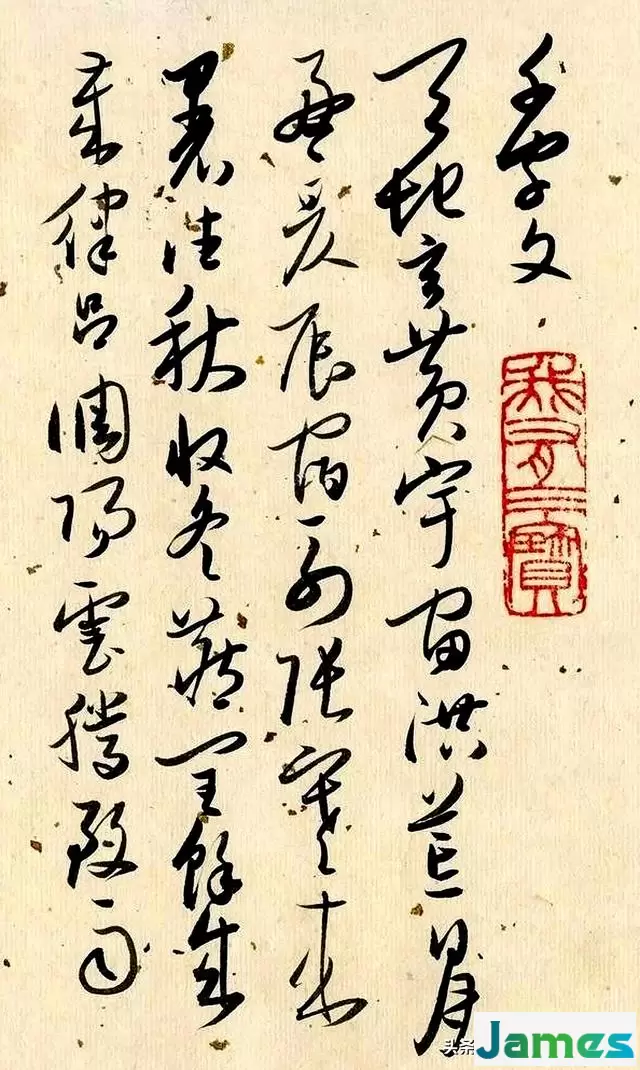 千字文
天地玄黄宇宙洪荒日月
盈昃辰宿列張寒来
暑往秋收冬藏閏餘成
歲律吕調陽雲騰致雨
我有三寶
头条
James